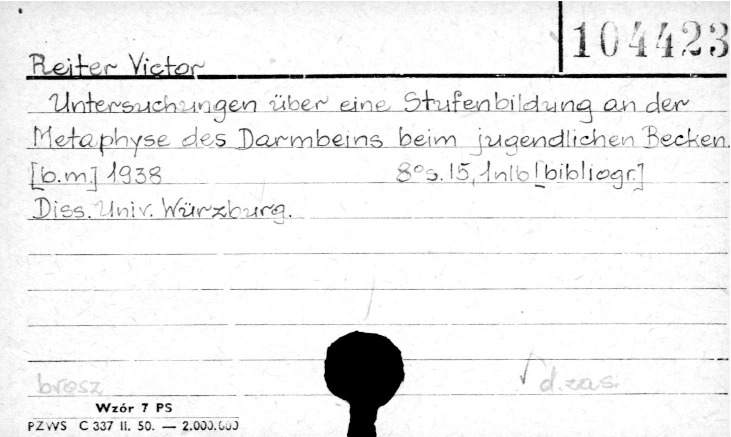 104423
Reiter Victor
Untersuchungen über eine Stufenbildung an der
Metaphyse des Darmbeins beim jugendlichen Becken.
[b.m] 1938 8°s. 15, 1nlb [bibliogr.]
Diss. Univ. Würzburg.
brosz
d. zas.
Wzór 7 PS
PZWS C 337 II. 50. — 2.000.000